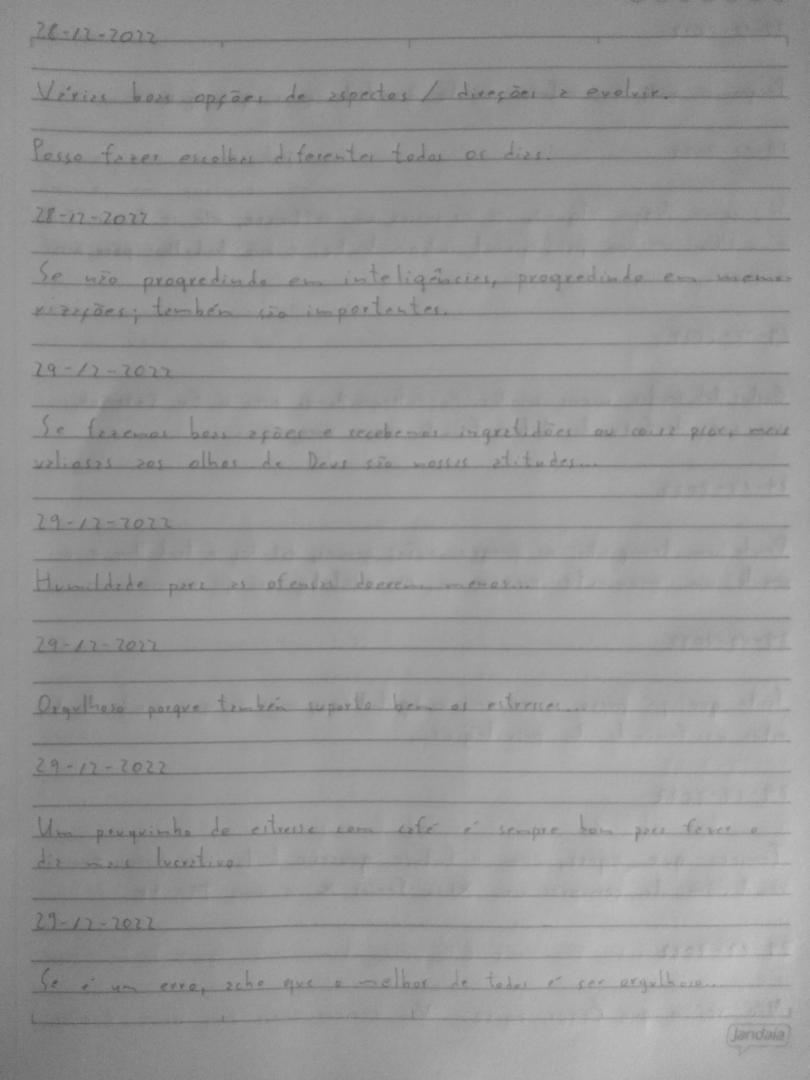 28-12-2022
Várias boas opções de aspectos / direções a evoluir.
Posso fazer escolhas diferentes todos os dias.
28-12-2022
Se não progredindo em inteligências, progredindo em memo-
rizações; também são importantes.
29-12-2022
Se fazemos boas ações e recebemos ingratidões ou coisa pior, mais
valiosas aos olhos de Deus são nossas atitudes...
29-12-2022
Humildade para as ofensas doerem menos...
29-12-2022
Orgulhoso porque também suporto bem os estresses...
29-12-2022
Um pouquinho de estresse com café é sempre bom para fazer o
dia mais lucrativo.
29-12-2022
Se é um erro, acho que o melhor de todos é ser orgulhoso...
Jandaia